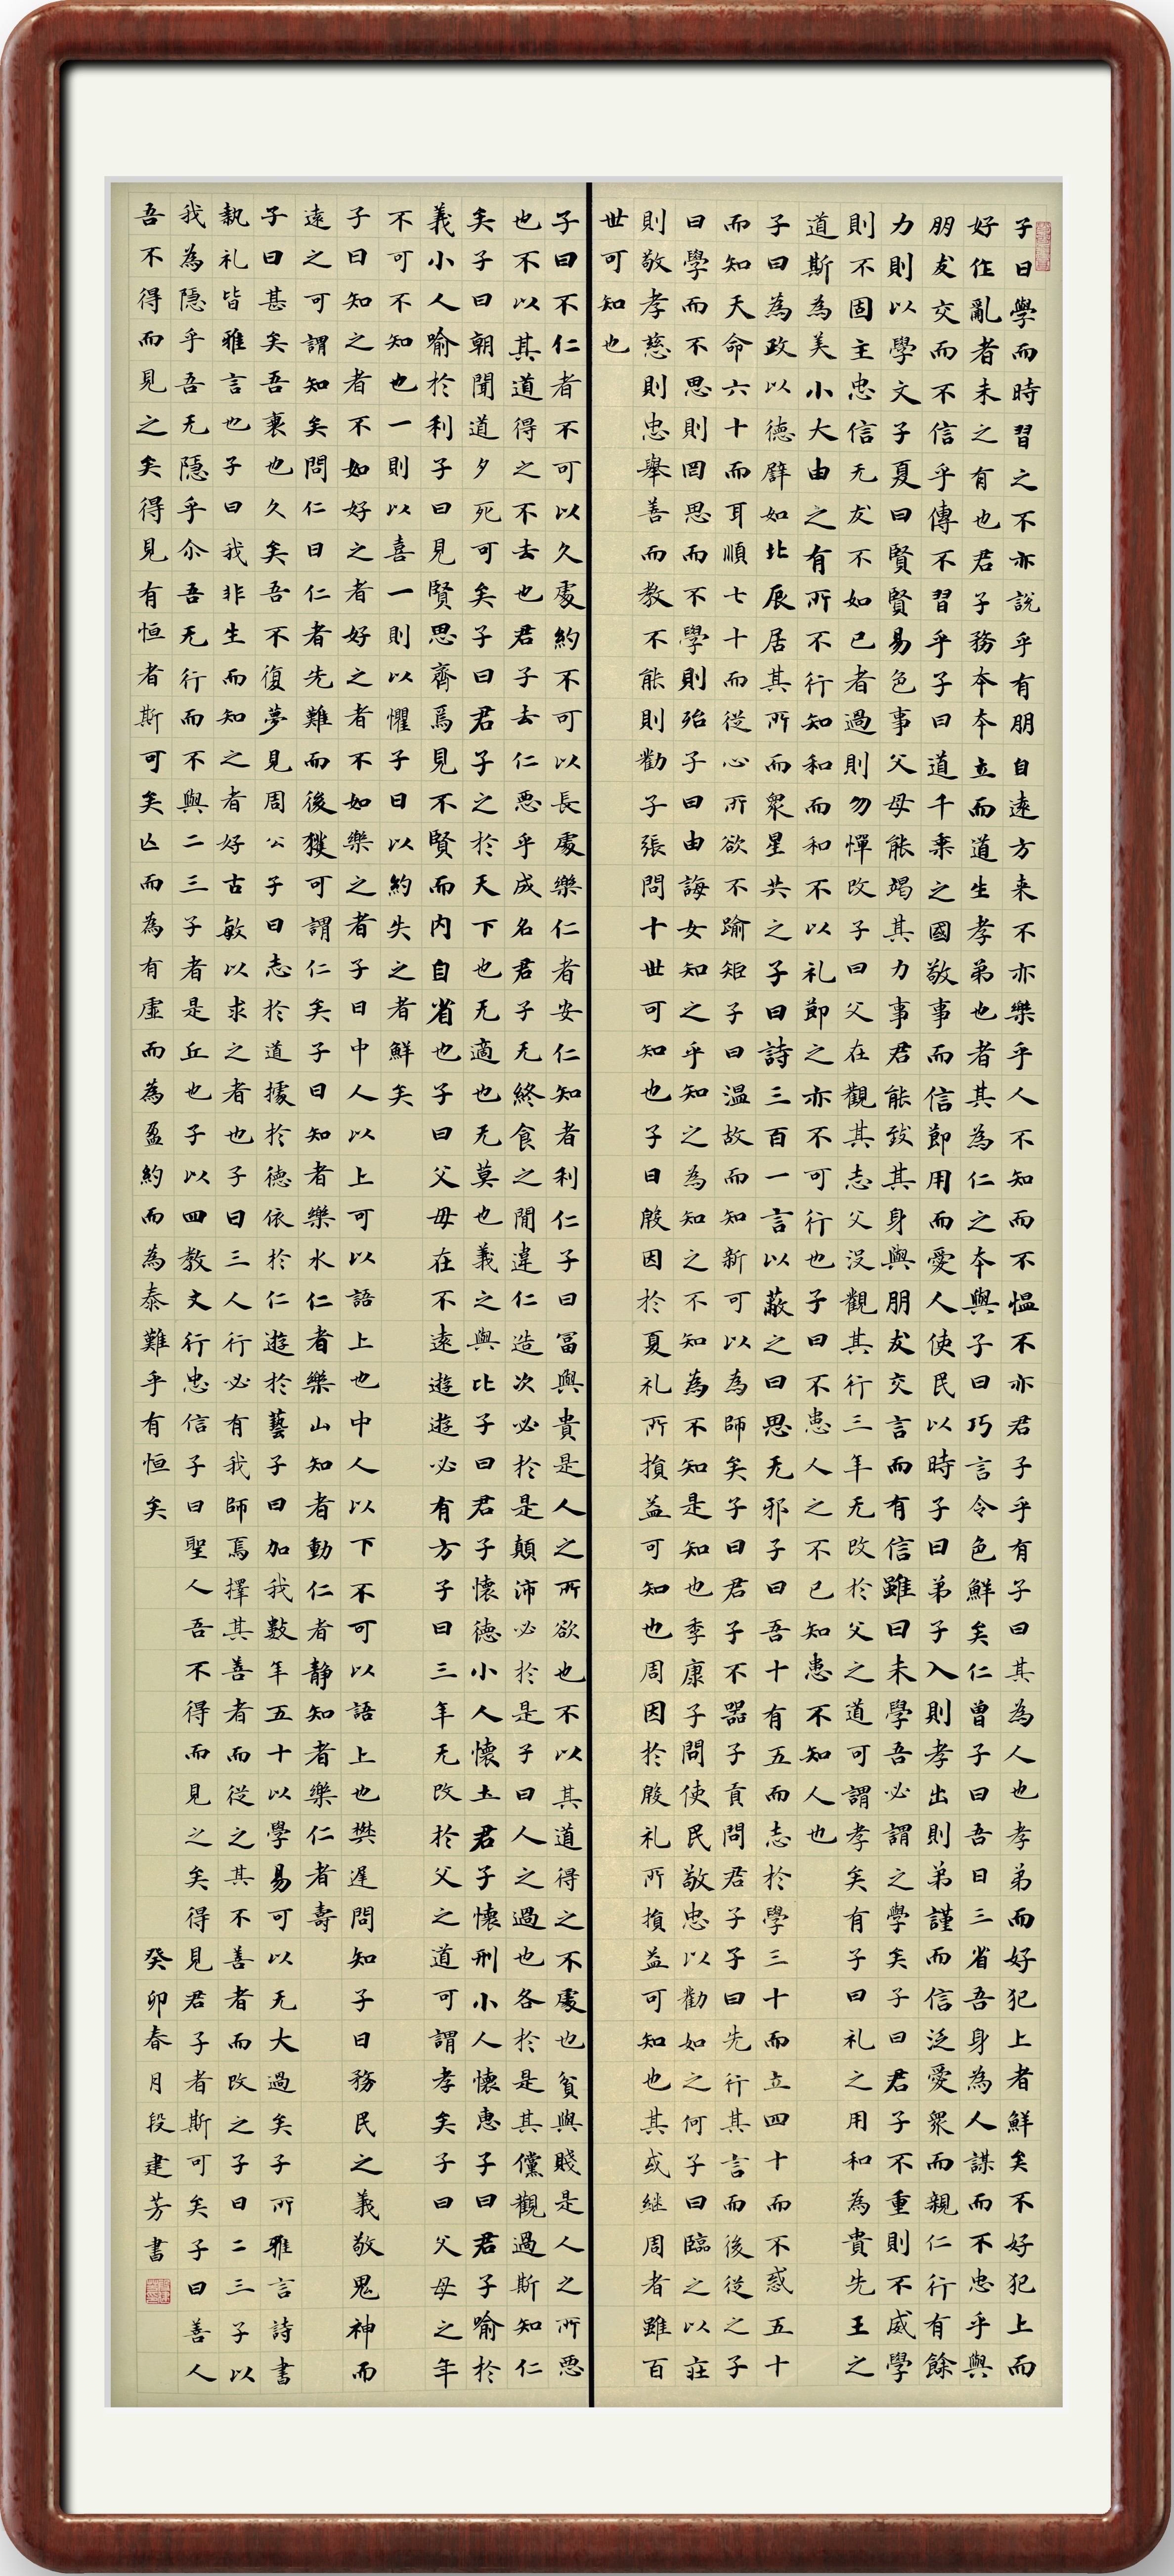 子曰學而時習之不亦說乎有朋自遠方来不亦樂乎人不知而不愠不亦君子乎有子曰其為人也孝弟而好犯上者鮮矣不好犯上而
好作亂者未之有也君子務本本立而道生孝弟也者其為仁之本與子曰巧言令色鮮矣仁曾子曰吾日三省吾身為人謀而不忠乎與
朋友交而不信乎傳不習乎子曰道千乗之國敬事而信節用而愛人使民以時子曰弟子入則孝出則弟謹而信泛愛衆而親仁行有餘
力則以學文子夏曰賢賢易色事父母能竭其力事君能致其身與朋友交言而有信雖曰未學吾必謂之學矣子曰君子不重則不威學
則不固主忠信无友不如己者過則勿憚改子曰父在觀其志父没觀其行三年无改於父之道可謂孝矣有子曰礼之用和為貴先王之
道斯為美小大由之有所不行知和而和不以礼節之亦不可行也子曰不患人之不己知患不知人也
子曰為政以德辟如北辰居其所而衆星共之子曰詩三百一言以蔽之曰思无邪子曰吾十有五而志於學三十而立四十而不惑五十
而知天命六十而耳順七十而從心所欲不踰矩子曰温故而知新可以為師矣子曰君子不器子貢問君子子曰先行其言而後從之子
曰學而不思則罔思而不學則殆子曰由誨女知之乎知之為知之不知為不知是知也季康子問使民敬忠以勸如之何子曰臨之以莊
則敬孝慈則忠舉善而教不能則勸子張問十世可知也子曰殷因於夏礼所損益可知也周因於殷礼所損益可知也其或継周者雖百
世可知也
子曰不仁者不可以久處約不可以長處樂仁者安仁知者利仁子曰冨與貴是人之所欲也不以其道得之不處也貧與賤是人之所悪
也不以其道得之不去也君子去仁悪乎成名君子无終食之間違仁造次必於是顛沛必於是子曰人之過也各於是其儻觀過斯知仁
矣子曰朝聞道夕死可矣子曰君子之於天下也无適也无莫也義之與比子曰君子懷德小人懷土君子懷刑小人懷惠子曰君子喻於
義小人喻於利子曰見賢思齊焉見不賢而内自省也子曰父母在不遠遊遊必有方子曰三年无改於父之道可謂孝矣子曰父母之年
不可不知也一則以喜一則以懼子曰以約失之者鮮矣
子曰知之者不如好之者好之者不如樂之者子曰中人以上可以語上也中人以下不可以語上也樊遲問知子曰務民之義敬鬼神而
遠之可謂知矣問仁曰仁者先難而後獲可謂仁矣子曰知者樂水仁者樂山知者動仁者静知者樂仁者壽
子曰甚矣吾衰也久矣吾不復夢見周公子曰志於道據於德依於仁遊於藝子曰加我數年五十以學易可以无大過矣子所雅言詩書
執礼皆雅言也子曰我非生而知之者好古敏以求之者也子曰三人行必有我師焉擇其善者而從之其不善者而改之子曰二三子以
我為隱乎吾无隱乎尒吾无行而不與二三子者是丘也子以四教文行忠信子曰聖人吾不得而見之矣得見君子者斯可矣子曰善人
吾不得而見之矣得見有恒者斯可矣亾而為有虛而為盈約而為泰難乎有恒矣
癸卯春月段建芳書